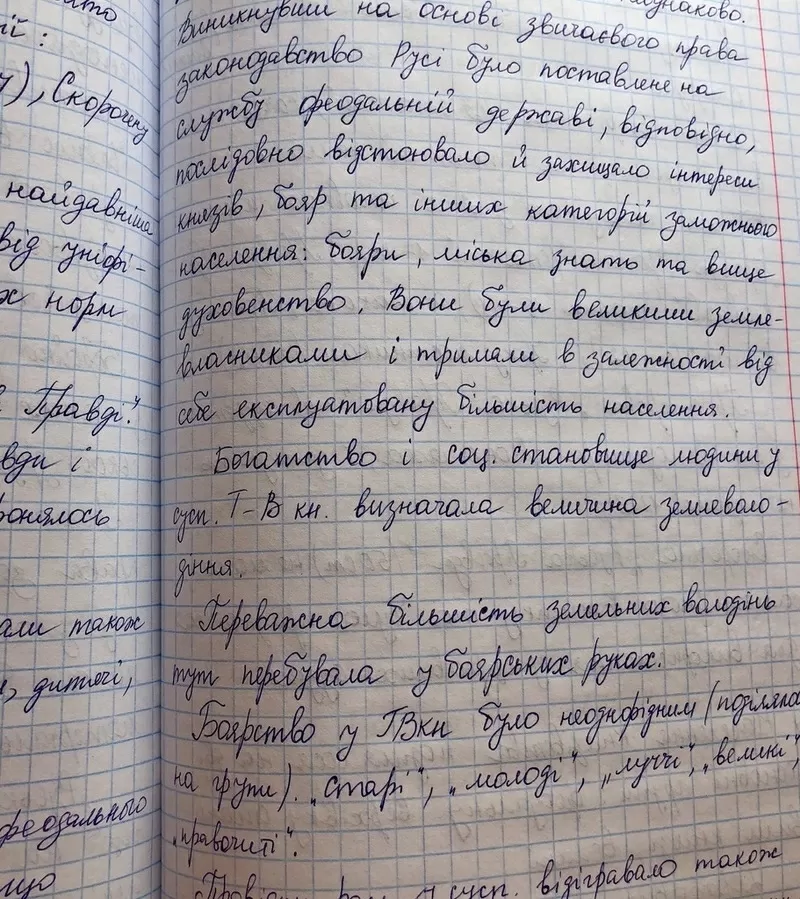 ато
ії:
), Скорочену
найдавніша
від уніфі-
х норм
Правді."
вди і
ронялось
али також
, дитячі,
феодального
що
однаково.
Виникнувши на основі звичаєвого права
законодавство Русі було поставлене на
службу феодальній державі, відповідно,
послідовно відстоювало й захищало інтереси
князів, бояр та інших категорій заможнього
населення: бояри, міська знать та вище
духовенство. Вони були великими земле-
власниками і тримали в залежності від
себе експлуатовану більшість населення.
Богатство і соц. становище людини у
сусп. Г-В кн. визначала величина землеволо-
діння.
Переважна більшість земельних володінь
тут перебувала у боярських руках.
Боярство у ГВкн було неоднорідним (поділяла
на групи). „старі", „молоді", „луччі", „великі",
„правочиті".
сусп. відігравало також